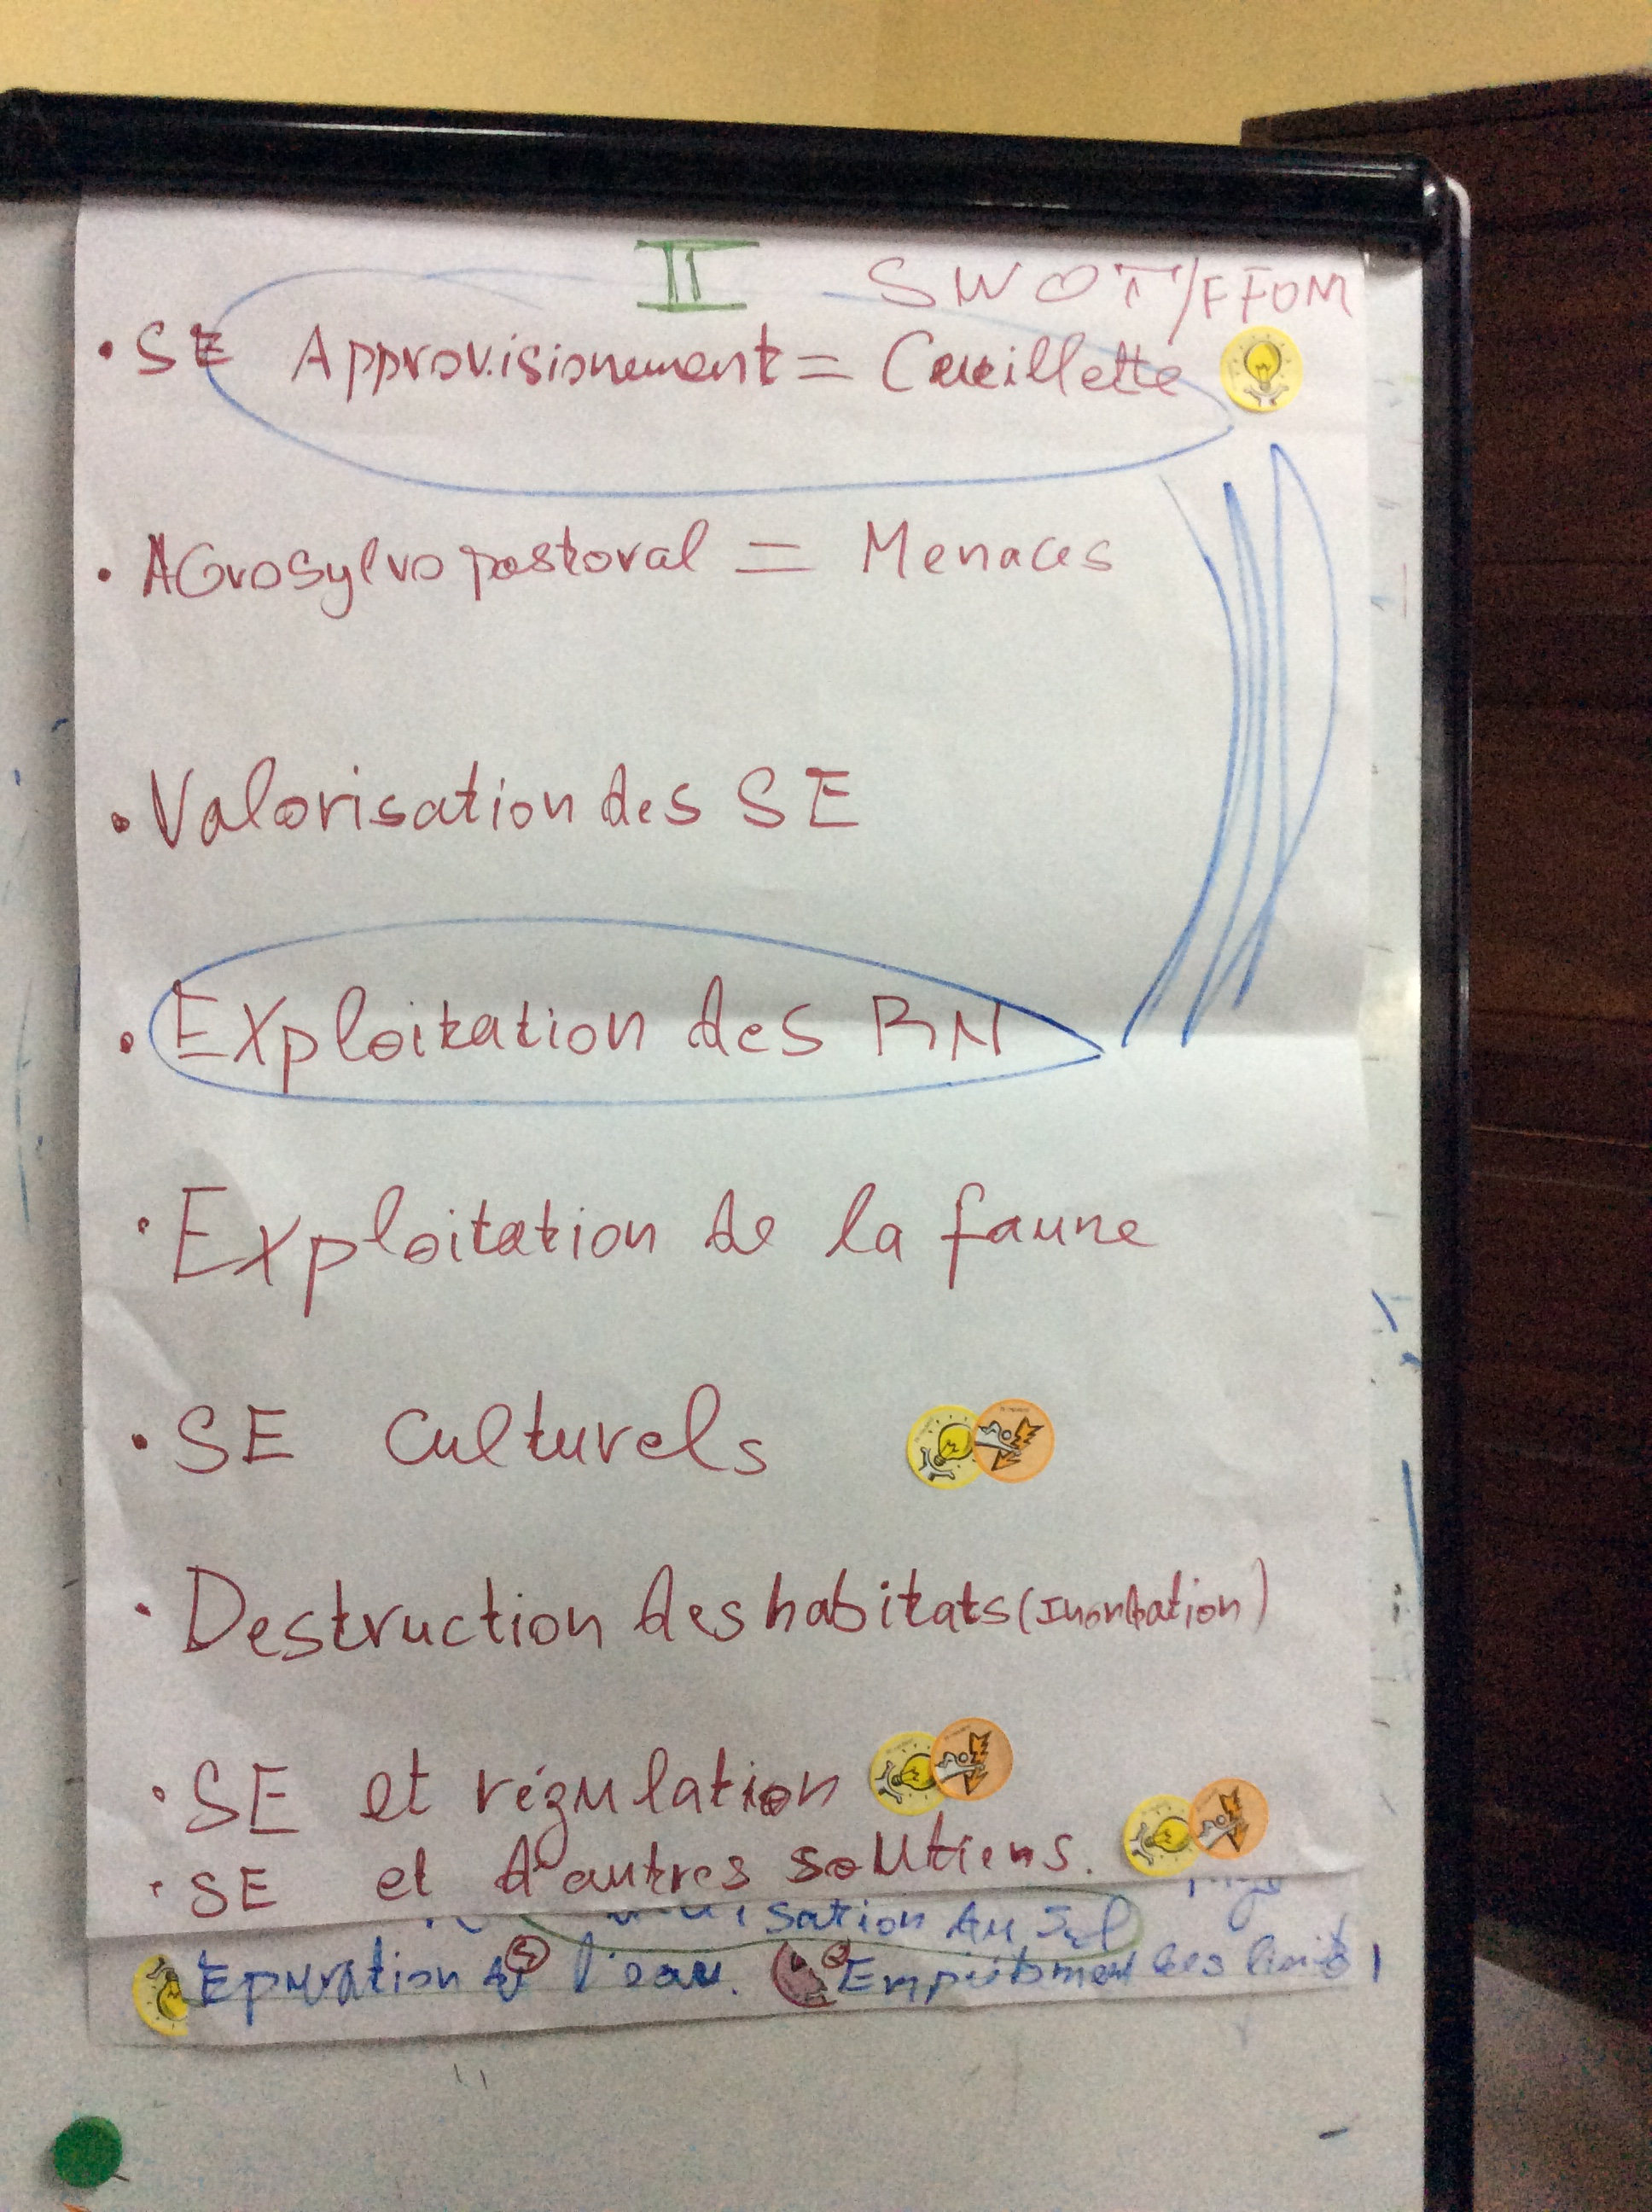 II SWOT/FFOM
• SE Approvisionement = Cueillette
• AGrosylvopastoral = Menaces
• Valorisation des SE
• Exploitation des RN
• Exploitation de la faune
• SE Culturels
• Destruction des habitats (Inondation)
• SE et régulation
• SE et d'autres soutiens.
isation du Sol
Epuration de l'eau. Empiètement des limites